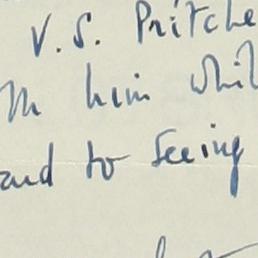 V. S. Pritche
him whil
and to seeing